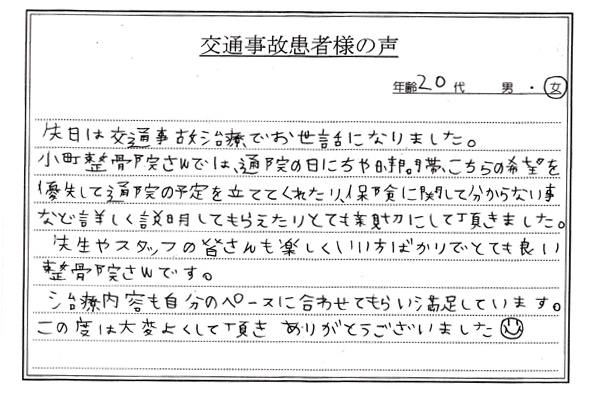 交通事故患者様の声
年齢20代 男・女
先日は交通事故治療でお世話になりました。
小町整骨院さんでは、通院の日にちや時間帯、こちらの希望を
優先して通院の予定を立ててくれたり、保険に関して分からない事
など詳しく説明してもらえたりとても親切にして頂きました。
先生やスタッフの皆さんも楽しくいい方ばかりでとても良い
整骨院さんです。
治療内容も自分のペースに合わせてもらい満足しています。
この度は大変よくして頂き ありがとうございました